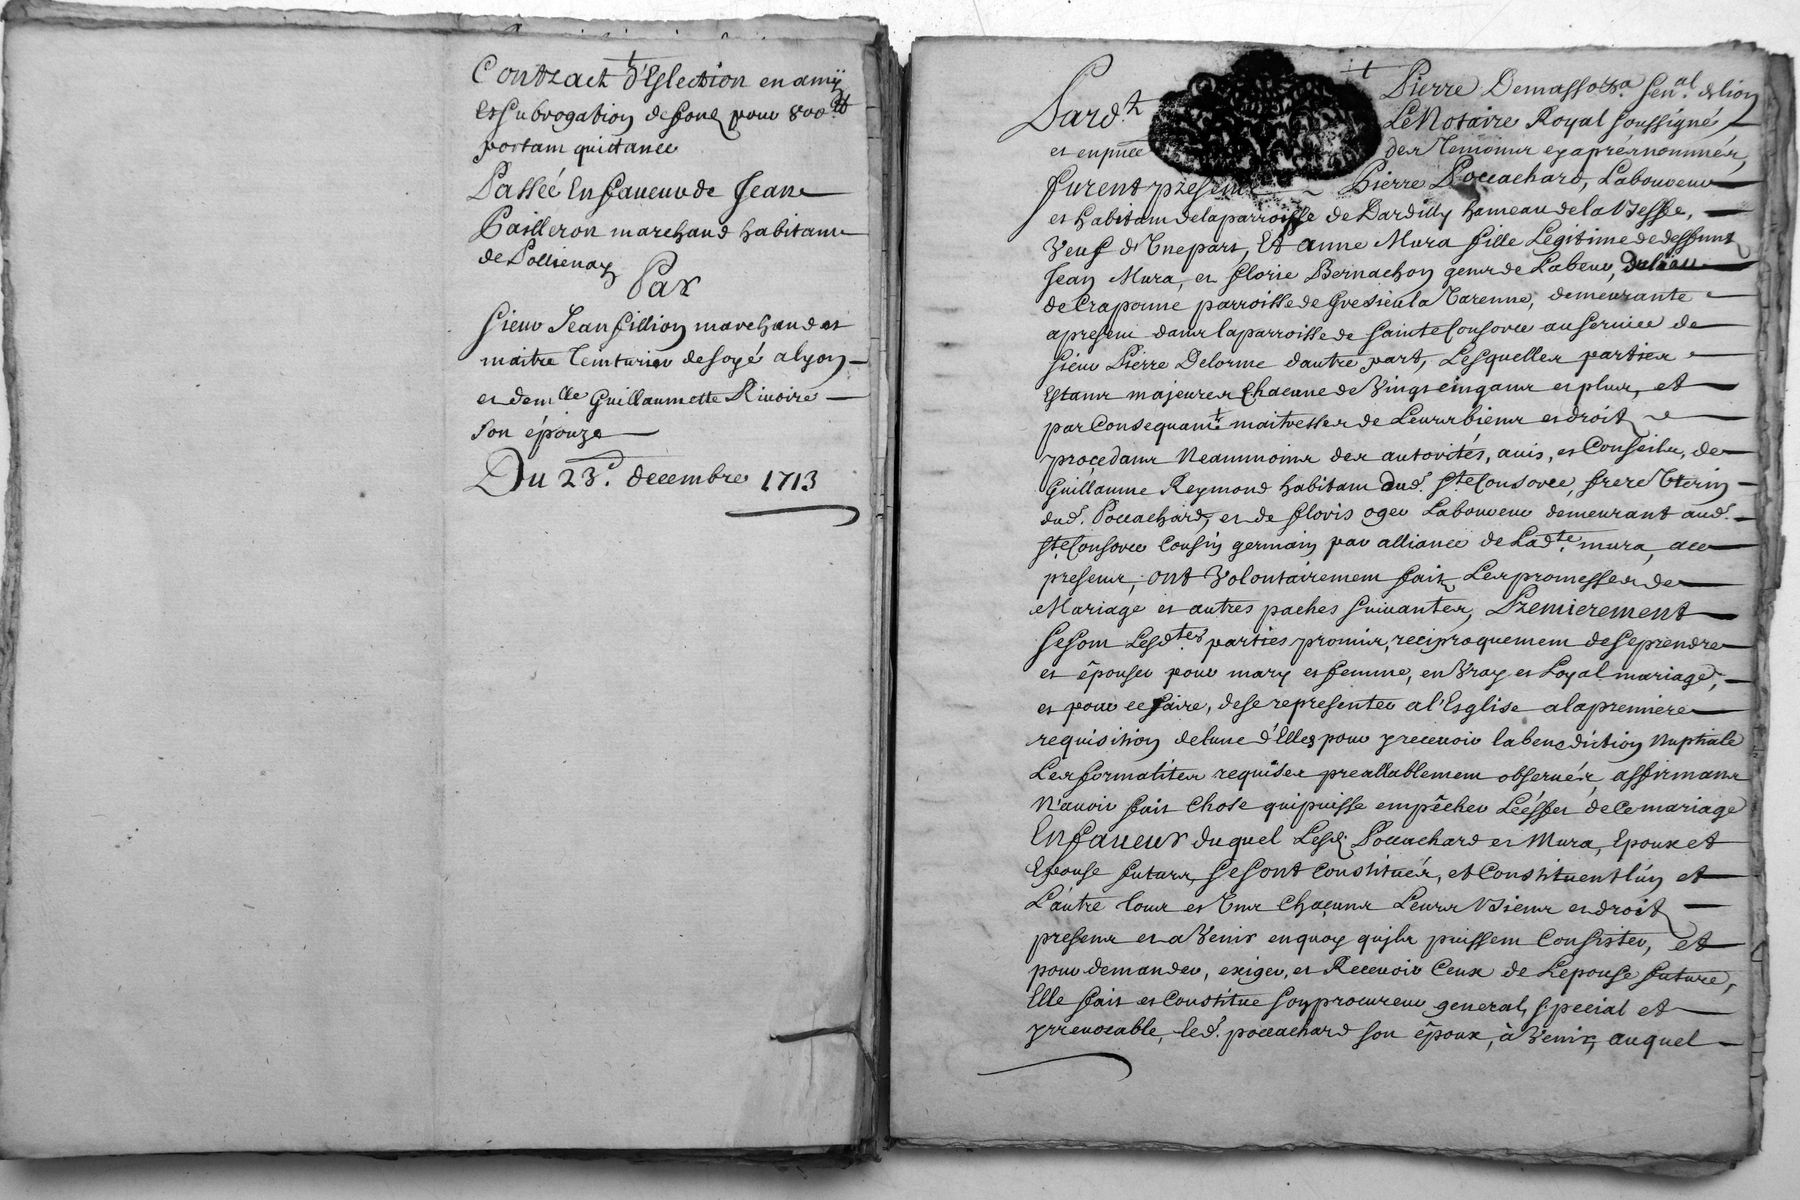 Contract d'Eslection en amÿ
et subrogation de fond pour 800 ₶
portant quittance
Passéé En faueur de Jean
Pailleron marchand habitant
de Pollienay
Par
Sieur Jean fillion marchand et
maitre Teinturier de soyé a lyon
et dem.lle Guillaumette Riuoire
son épouze
Du 23.e decembre 1713
Pard.t Pierre Demasso Sen.al de lion
Le Notaire Royal soussigné
et en pnce des temoins cy apres nommés,
furent presens Pierre Poccachard, Laboureur
et habitant de la parroisse de Dardilly hameau de la Besse,
Veuf d'Une part, Et anne Mura fille Legitime de deffunt
Jean Mura, et florie Bernachon gens de Labeur, du lieu
de Craponne parroisse de Gresieu la Varenne, demeurante
apresent dans la parroisse de sainte Consorce au seruice de
sieur Pierre Delorme d'autre part, Lesquelles parties
Estans majeures Chacune de Vingt cinq ans et plus, et
par Consequant maitresses de Leurs biens et droits
procedans Neanmoins des autorités, auis, et Conseils, de
Guillaume Reymond habitant dud. Ste Consorce, frere Uterin
dud. Poccachard, et de floris oger Laboureur demeurant aud.
Ste Consorce Cousin germain par alliance de Lad.te mura, ace
presens, ont Volontairement fait Les promesses de
Mariage et autres paches suiuantes, Premierement
se sont Lesd.tes parties promis, reciproquement de se prendre
et épouser pour mary et femme, en Vray et Loyal mariage,
et pour ce faire, de se representer a l'Esglise a la premiere
requisition de lune d'Elles pour y receuoir la benediction Nuptiale
Les formalites requises preallablement obserués, affirmans
N'auoir fait Chose qui puisse empêcher Lééffet de Ce mariage
En faueur duquel Lesd. Poccachard et Mura, Epoux et
Epouse futurs, se sont Constitués, et Constituent lún et
L'autre tous et Uns Chacuns Leurs Biens et droits
presens et a Venir en quoy qu'ils puissent Consister, et
pour demander, exiger, et Receuoir Ceux de L'epouse future,
Elle fait et Constitue son procureur general, special et
yrreuocable, led. poccachard son époux, à Venir, auquel